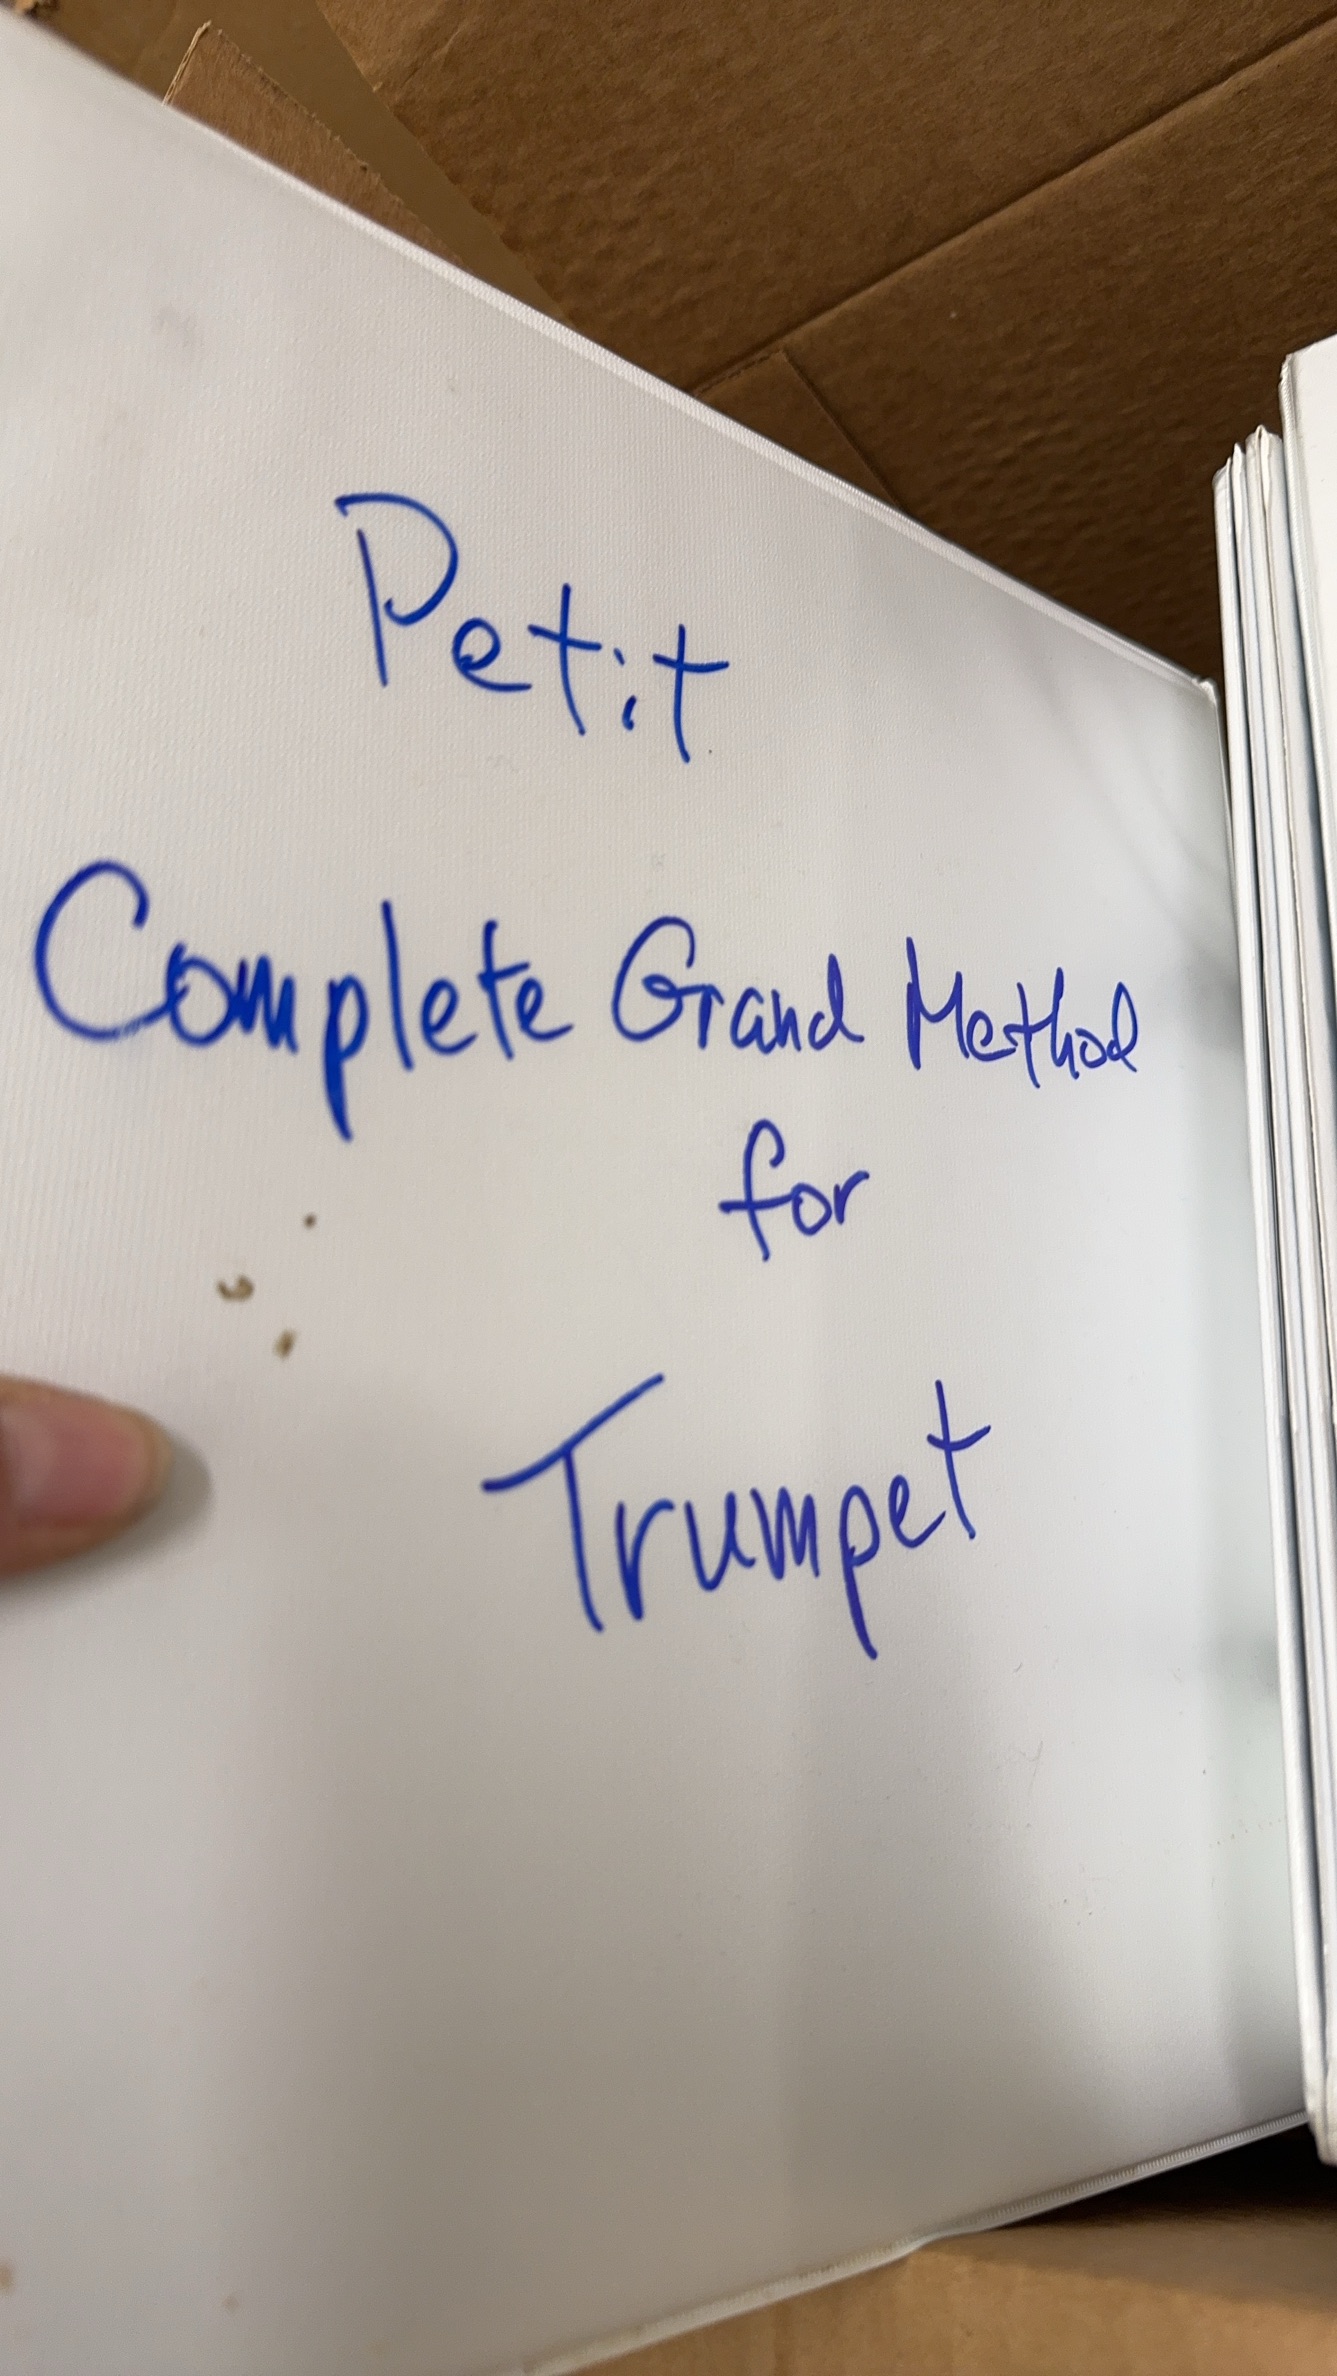 Petit
Complete Grand Method
for
Trumpet